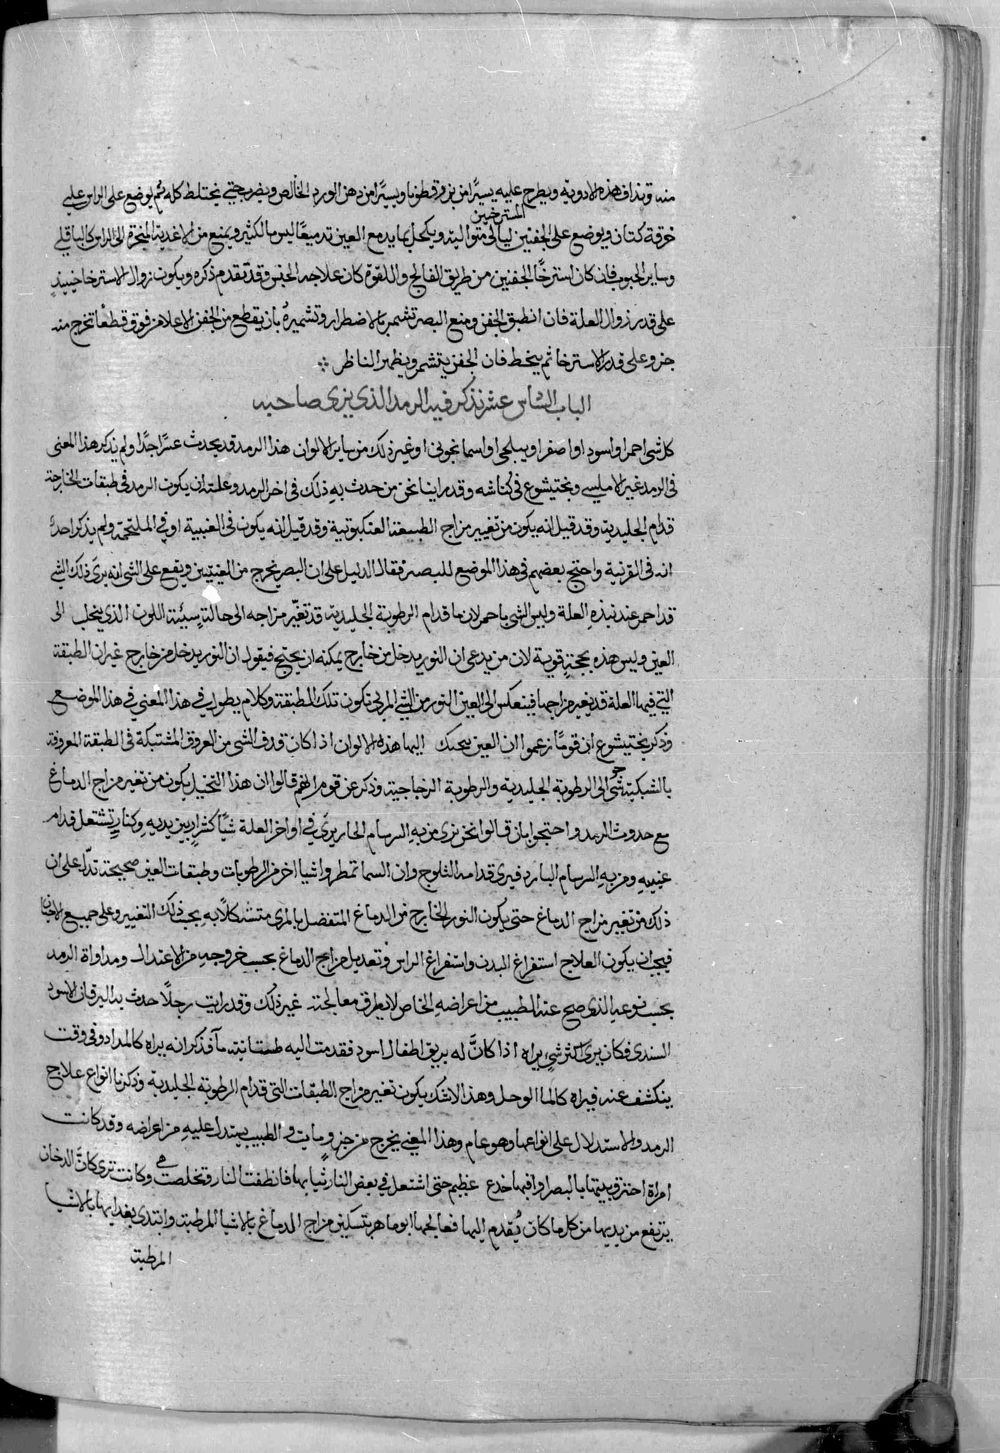 منه وتداف هذه الادوية ويطرح عليه يسيرًا من بزر قطونا ويسيرًا من دهن الورد الخالص ويضرب حتى يختلط كله ثم يوضع على الراس على
خرقة كتان ويوضع على الجفنين المسترخيين ليالي متواليه ويكحل بما يدمع العين تدميعًا ليس بالكثير ويمنع من الاغذية المبخرة الى الراس كالباقلي
وساير الحبوب فان كان استرخا الجفنين من طريق الفالج واللقوة كان علاجه الحبس وقد تقدم ذكره ويكون زوال الاسترخا حينيذٍ
على قدر زوال العلة فان انطبق الجفن ومنع البصر تشمر بالاضطرار وتشميره بان يقطع من الجفن الاعلا من فوق قطعًا تخرج منه
جزو على قدر الاسترخا ثم يخيط فان الجفن يتشمر ويظهر الناظر
الباب السادس عشر نذكر فيه الرمد الذي يرى صاحبه
كل شي احمر او اسود او اصفر او نيلجي او اسمانجوني او غير ذلك من ساير الالوان هذا الرمد قد يحدث عسرًا جدًا ولم يذكر هذا المعنى
في الرمد غير الامليسي وبختيشوع في كناشه وقد راينا نحن من حدث به ذلك في اخر الرمد وعلته ان يكون الرمد في طبقات الخارجة
قدام الجليدية وقد قيل انه يكون من تغيير مزاج الطبقة العنكبوتية وقد قيل انه يكون في العنبية او في الملتحمة ولم يذكر احدٌ
انه في القرنية واحتج بعضهم في هذا الموضع للبصر فقال الدليل على ان البصر يخرج من العينين ويقع على الشي انه يرى ذلك الشي
قد احمر عند هذه العلة وليس الشي باحمر لان ما قدام الرطوبة الجليدية قد تغيّر مزاجه الى حالة سيئة اللون الذي ينجلب الى
العين وليس هذه بحجةٍ قوية لان من يدعي ان النور يدخل من خارج يمكنه ان يحتج فيقول ان النور يدخل من خارج غير ان الطبقة
التي فيها العلة قد يغير مزاجها فينعكس الى العين النور من الشي المرئي بكون تلك الطبقة وكلام يطول في هذا المعنى في هذا الموضع
وذكر بختيشوع ان قومًا زعموا ان العين اليها هذه الالوان اذا كان قد في الشي من العروق المشتبكة في الطبقة المعروفة
بالشبكية شي الى الرطوبة الجليدية والرطوبة الزجاجية وذكر عن قوم انهم قالوا ان هذا التخيل يكون من تغير مزاج الدماغ
مع حدوث الرمد واحتجوا بان قالوا نحن نرى من به السرسام الحار يرى في اواخر العلة شيًا كشرار بين يديه وكنار تشتعل قدام
عينيه ومن به السرسام البارد فيرى قدامه الثلوج وان السما تمطر واشيا اخر من الرطوبات وطبقات العين صحيحة تدل على ان
ذلك من تغير مزاج الدماغ حتى يكون النور الخارج من الدماغ المتفصل بالمرى متشكلا به بحسب ذلك التغيير وعلى جميع الاحوال
فيجب ان يكون العلاج استفراغ البدن واستفراغ الراس وتعديل مزاج الدماغ بحسب خروجه من الاعتدال ومداواة الرمد
بحسب نوعه الذي صح عند الطبيب من اعراضه الخاص لا يطرق معالجة غير ذلك وقد رايت رجلًا حدث به اليرقان الاسود
السندي فكان يرى اكثر شي يراه اذا كان له بريق اطفال اسود فقدمت اليه طستا فيه ما فذكر انه يراه كالمداد وفي وقت
ينكشف عنه فيراه كالما الوحل وهذا لاشك يكون تغير مزاج الطبقات التي قدام الرطوبة الجليدية وذكرنا انواع علاج
الرمد والاستدلال على انواعها وهو عام وهذا المعنى يخرج من جزوياته والطبيب يستدل عليه من اعراضه وقد كانت
امراة احترق بيتها بالبصرة وافيها خدع عظيم حتى اشتعل في بعض النار ثيابها فانطفت النار وتخلصت هي وكانت ترى كانّ الدخان
يرتفع من يديها من كل ما كان يُقدم اليها فعالجها ابو ماهر بتسكين مزاج الدماغ بالاشيا المرطبة وابتدى يغذيها بالاشيا
المرطبة